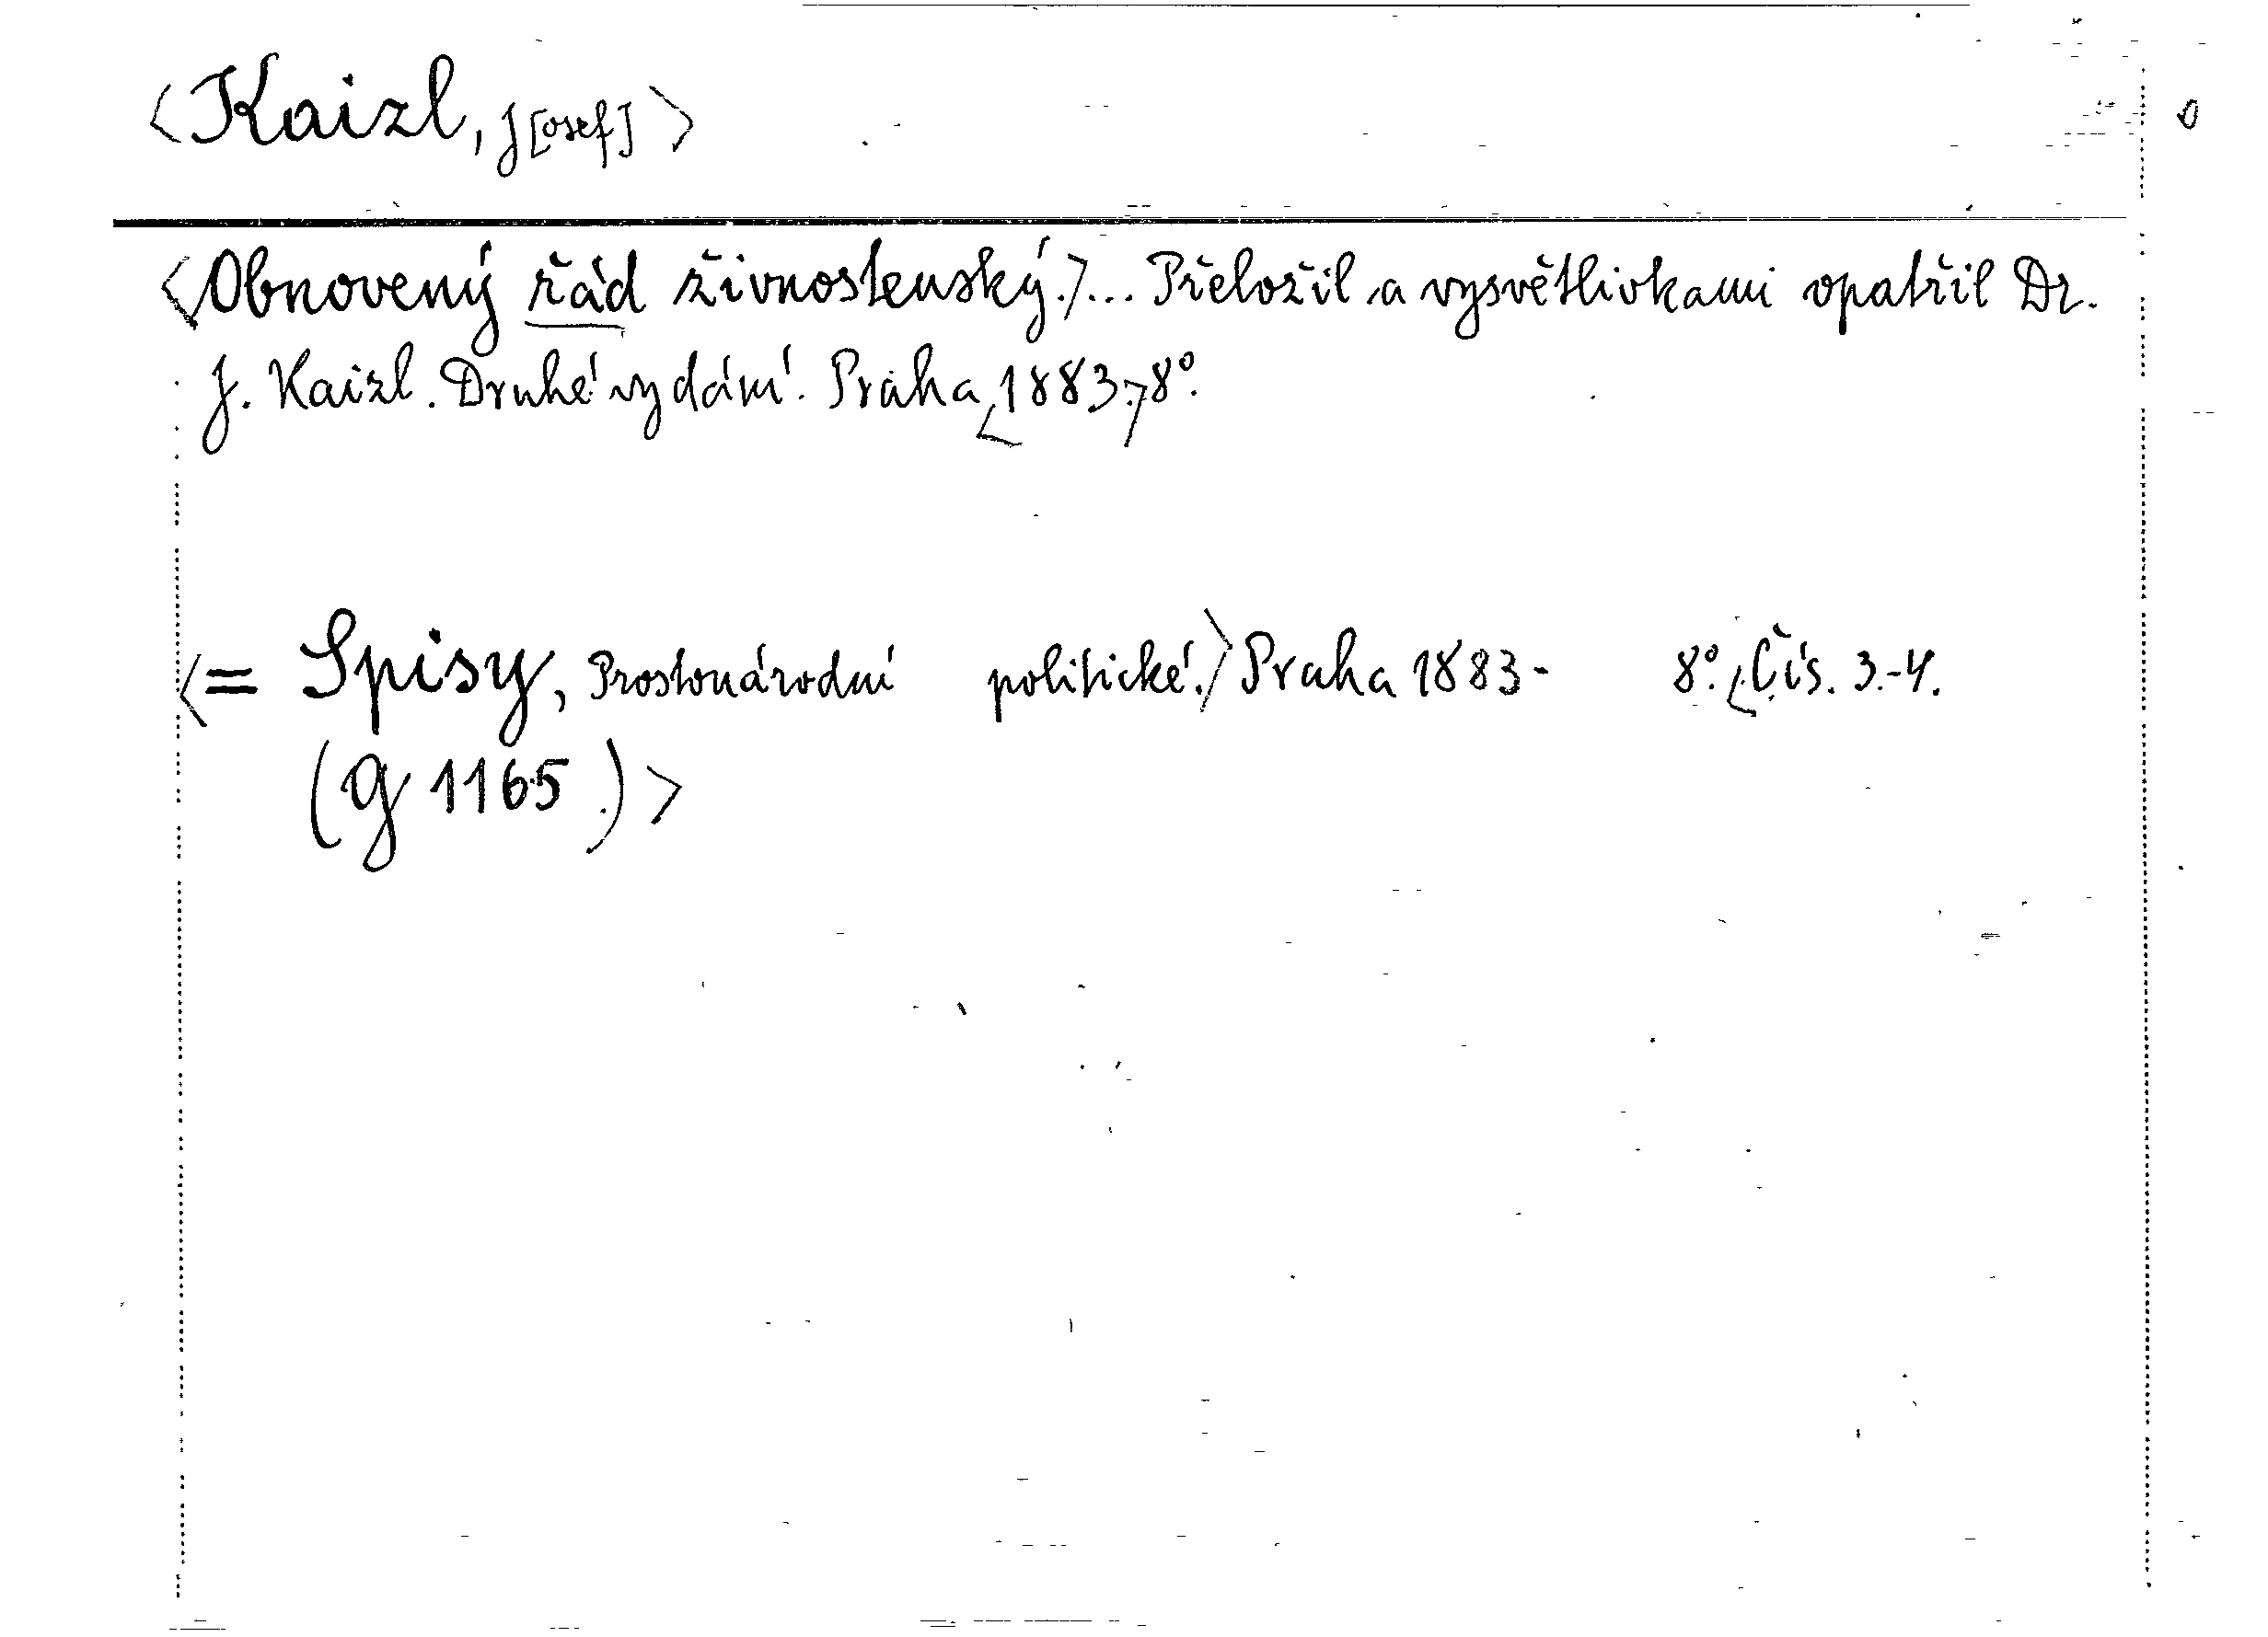 <Kaizl, J[osef]>
<Obnovený řád živnostenský.>... Přeložil a vysvětlivkami opatřil Dr.
J. Kaizl. Druhé vydání. Praha <1883.> 8°.
<= Spisy, Prostonárodní politické.> Praha 1883- 8°. <Čís. 3.-4.
(g 1165)>